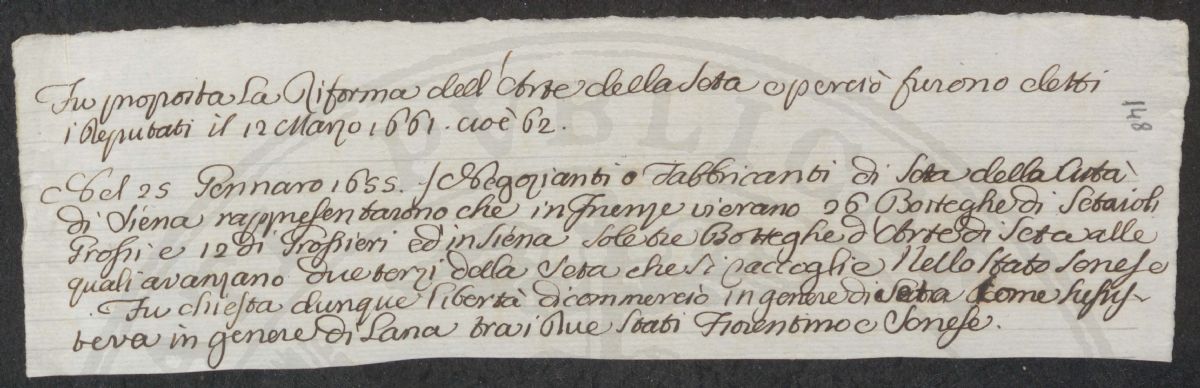 Fu proposta La Riforma dell'Arte della Seta e perciò furono eletti
i Deputati il 12 Marzo 1661. cioè 62.
Nel 25 Gennaro 1655. I Negozianti o Fabbricanti di Seta della Città
di Siena rappresentarono che in Firenze vi erano 26 Botteghe di Setaioli
Grossi e 12 di Grossieri ed in Siena sole tre Botteghe d'Arte di Seta alle
quali avanzano due terzi della Seta che si raccoglie Nello Stato Senese
Fu chiesta dunque libertà di commercio in genere di Seta Come sussis-
teva in genere di Lana tra i Due Stati Fiorentino e Senese.
148
PUBLIC